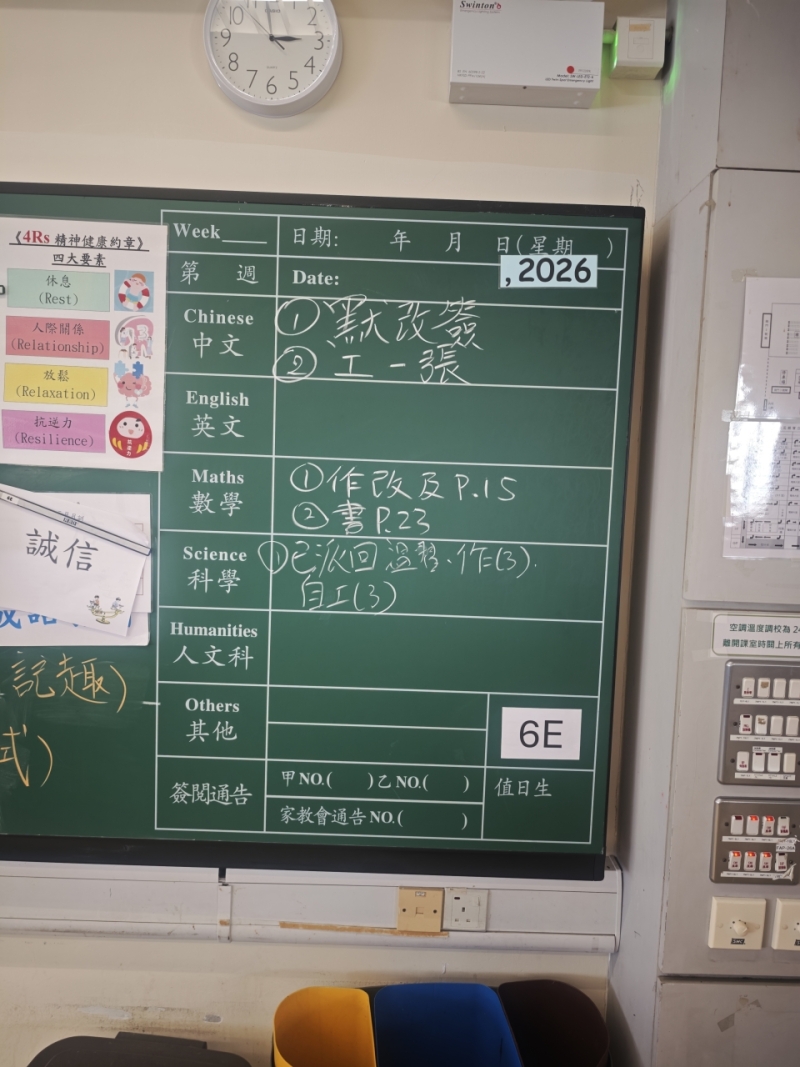 10
2
9
3
8
4
7
6
5
Swinton
《4Rs 精神健康約章》
四大要素
休息
(Rest)
人際關係
(Relationship)
放鬆
(Relaxation)
抗逆力
(Resilience)
誠信
記趣)
式)
Week____ 日期: 年 月 日(星期 )
第 週 Date: , 2026
Chinese
中文
① 默改簽
② 工一張
English
英文
Maths
數學
① 作改及 P.15
② 書 P.23
Science
科學
① 已派回溫習、作(3).
自工(3)
Humanities
人文科
Others
其他
6E
簽閱通告
甲NO.( )乙NO.( )
家教會通告NO.( )
值日生
空調溫度調校為 24
離開課室時關上所有